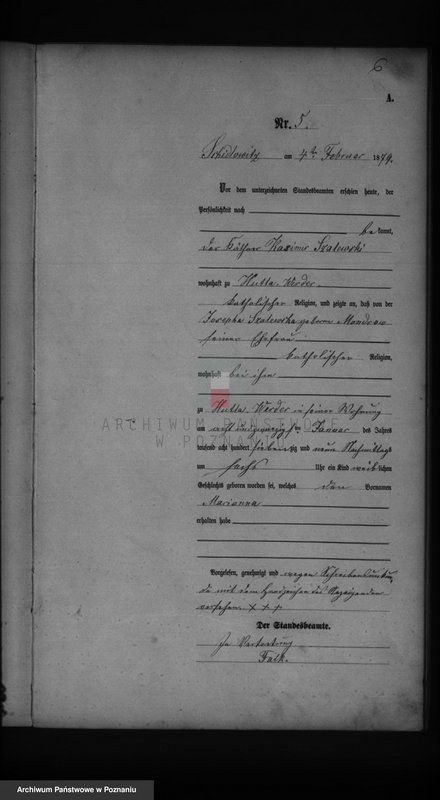 6
A.
Nr. 5.
am 4ten Februar 1879.
Vor dem unterzeichneten Standesbeamten erschien heute, der
Persönlichkeit nach
bekannt,
der Käthner Kasimir Szalewski
wohnhaft zu Hutta Werder
katholischer Religion, und zeigte an, daß von der
Josepha Szalewska geborene
seiner Ehefrau
katholischer Religion,
wohnhaft bei ihm
zu Hutta Werder in seiner Wohnung
am acht und zwanzigsten Januar des Jahres
tausend acht hundert siebenzig und neun Nachmittags
um sechs Uhr ein Kind weiblichen
Geschlechts geboren worden sei, welches den Vornamen
Marianna
erhalten habe
Vorgelesen, genehmigt und wegen Schreibensunkun
de mit dem Handzeichen des Anzeigenden
versehen. + + +
Der Standesbeamte.
In Vertretung
Falk.
ARCHIWUM PAŃSTWOWE
W POZNANIU
Archiwum Państwowe w Poznaniu